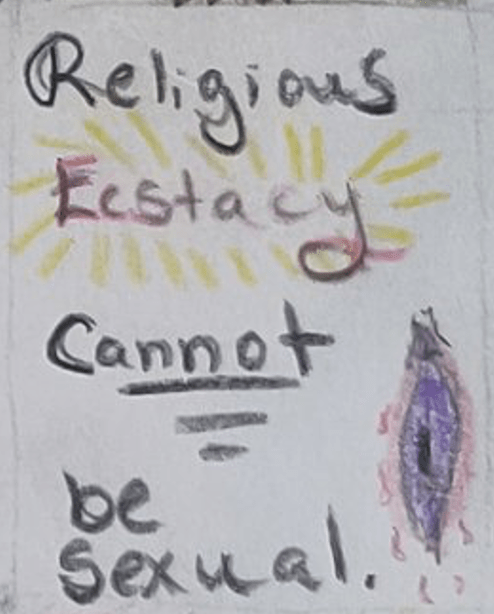 Religious
Ecstacy
Cannot
be
sexual.